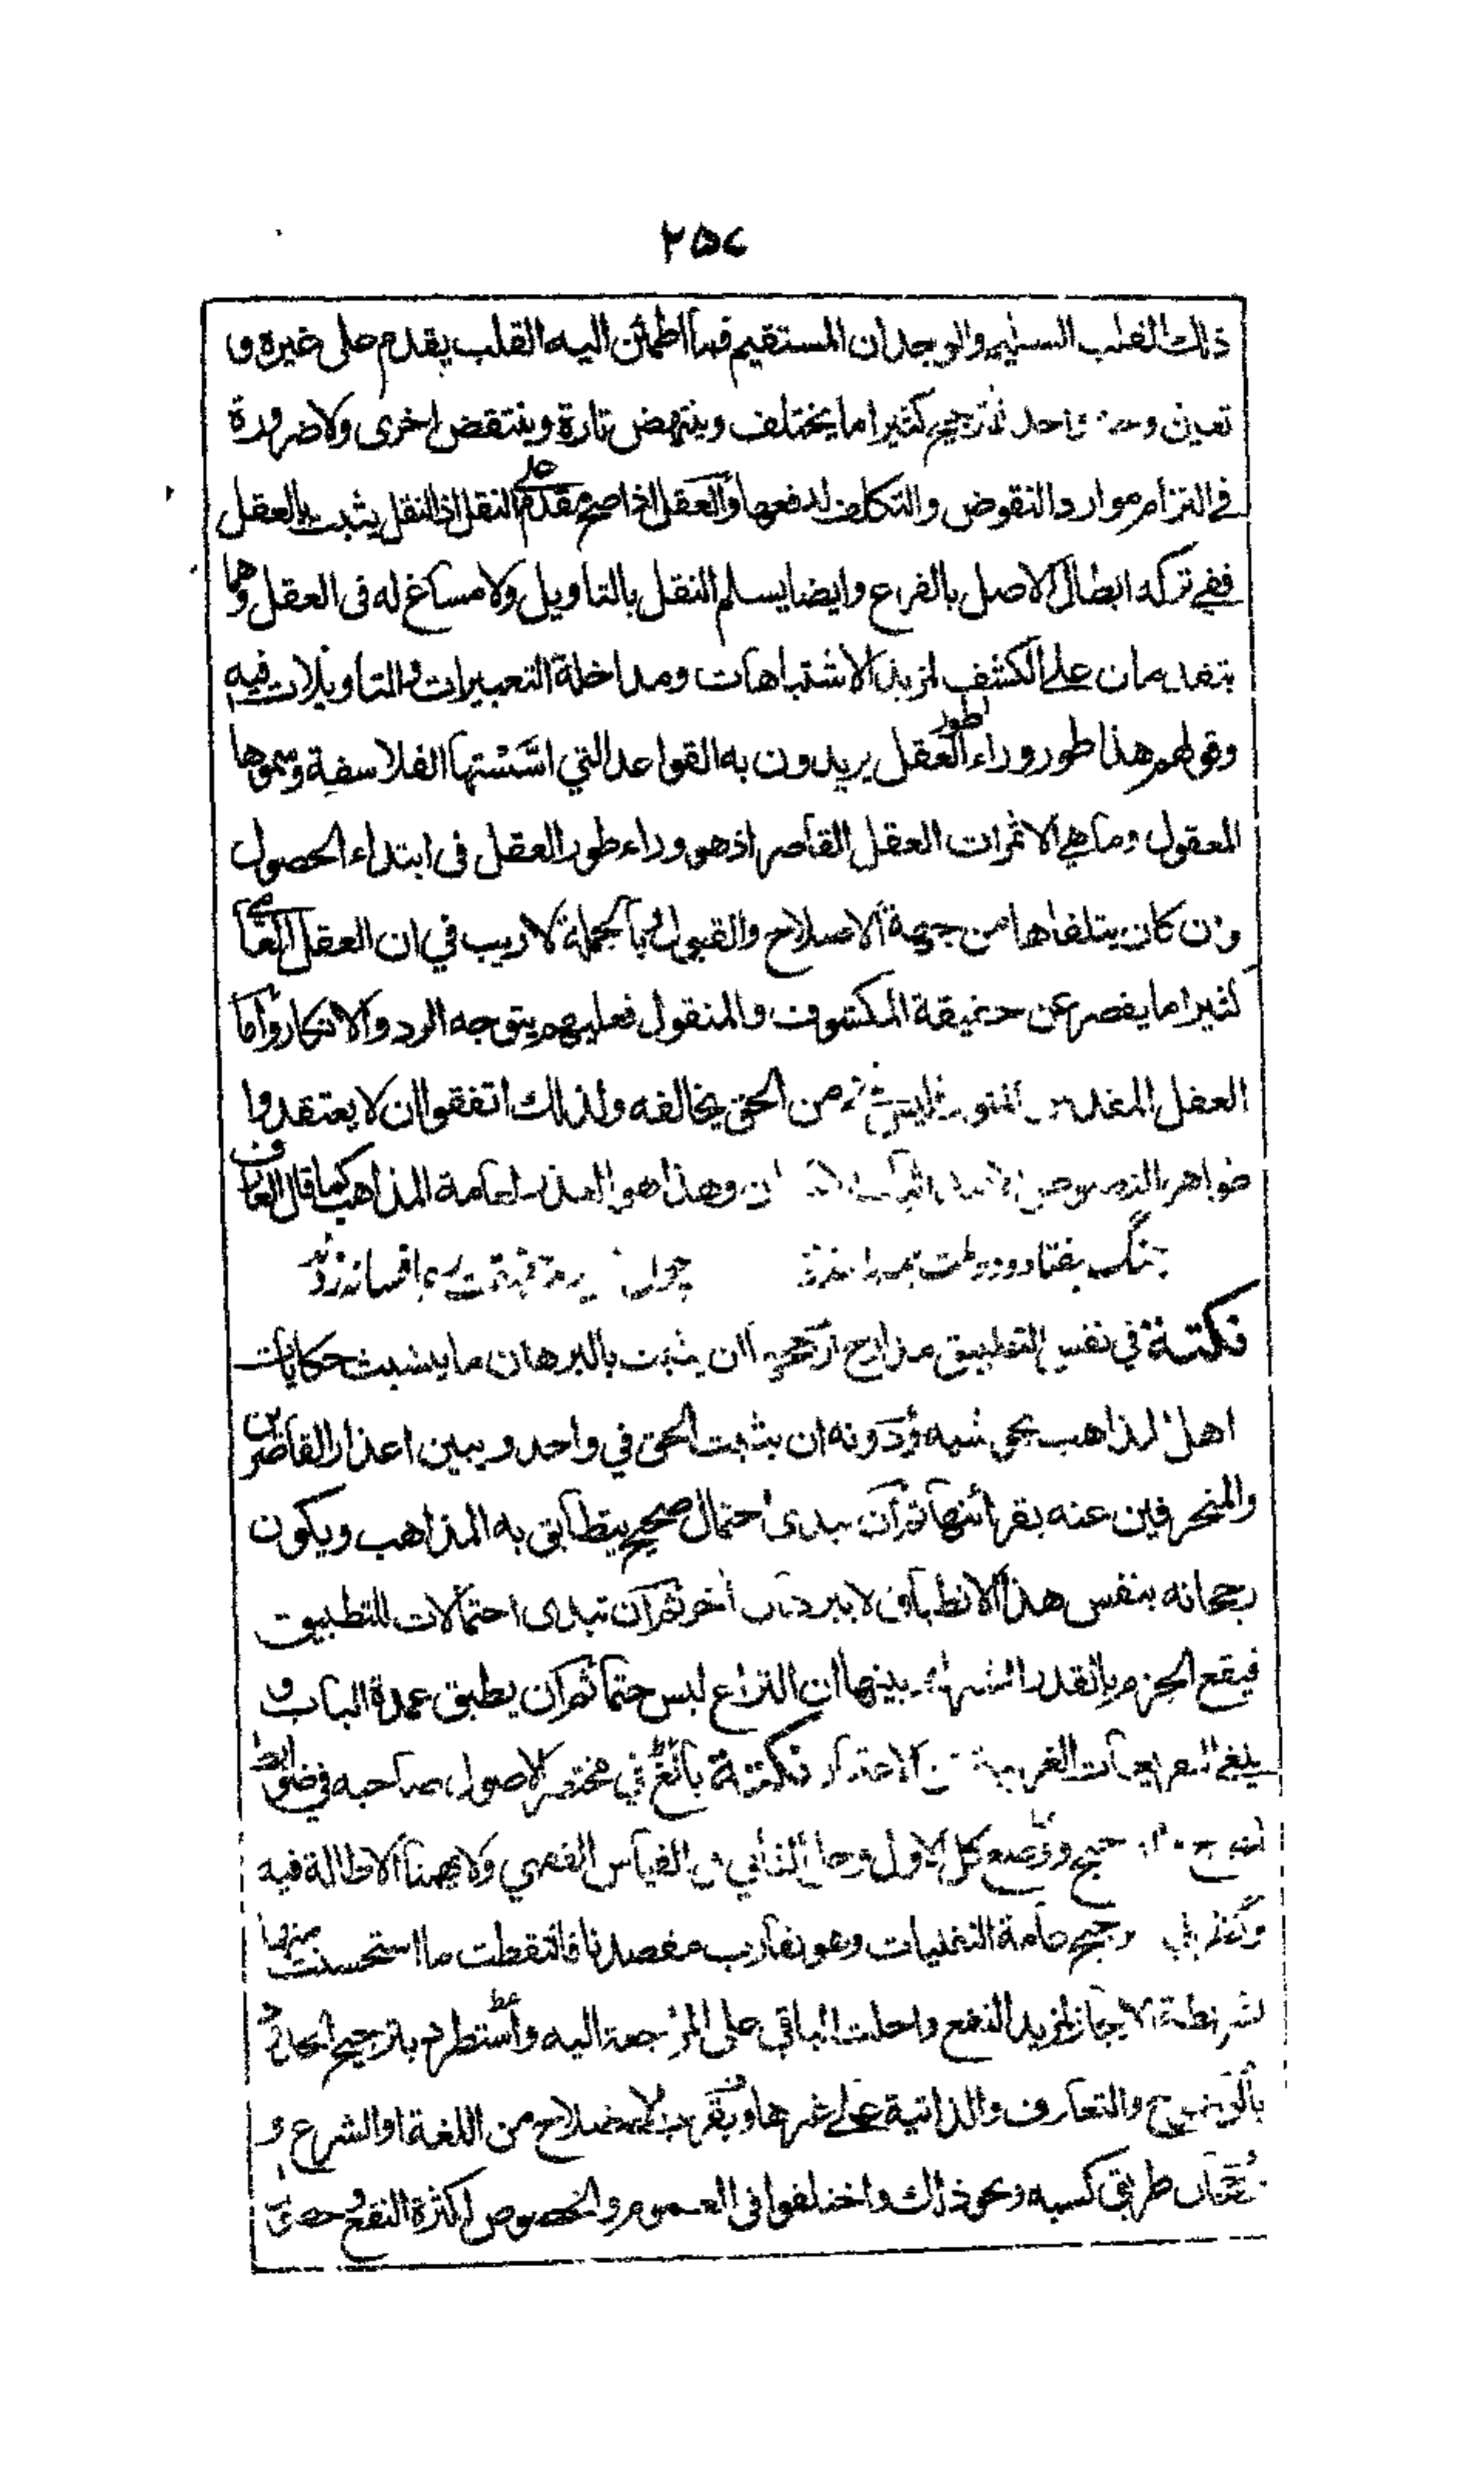 ٢٥٧
ذلك القلب السليم والوجدان المستقيم فما اطمأن اليه القلب يقدم على غيره و
تعين وجه واحد للترجيح كثيرا ما يختلف وينتهض تارة وينتقض اخرى ولا ضرورة
في التزام موارد النقوض والتكلف لدفعها والعقل اذا صح مقدم على النقل اذ النقل يثبت بالعقل
ففي تركه ابطال الاصل بالفرع وايضا يسلم النقل بالتاويل ولا مساغ له فى العقل وهما
يتقدمان على الكشف لمزيد الاشتباهات ومداخلة التعبيرات والتاويلات فيه
وقولهم هذا طور وراء طور العقل يريدون به القواعد التي اسستها الفلاسفة وسموها
المعقول وما هي الا ثمرات العقل القاصر اذ هو وراء طور العقل فى ابتداء الحصول
وان كان يتلقاها من جهة الاصلاح والقبول وبالجملة لا ريب في ان العقل العامي
كثيرا ما يقصر عن حقيقة المكشوف والمنقول فعليهم يتوجه الرد والانكار واما
العقل المقدس المنور فليس شئ من الحق يخالفه ولذلك اتفقوا ان لا يعتقدوا
ظواهر النصوص وهذا هو العذر لعامة المذاهب كما قال العارف
جنگ هفتاد و دو ملت همه را عذر چون حقیقت ره افسانه زدند
نكتة في نفس التطبيق مدارج ارجحها ان يثبت بالبرهان ما ينشبث حكايات
اهل المذاهب بحواشيه ودونه ان يثبت الحق في واحد ويبين اعذار القاصرين
والمنحرفين عنه بقرائنها ثم ان يبدى احتمال صحيح يتطابق به المذاهب ويكون
رجحانه بنفس هذا الانطباق لا ببرهان آخر ثم ان تبدى احتمالات للتطبيق
فيقع الجزم بالقدر المشترك بينها ان النزاع ليس حتما ثم ان يطبق عمدة الباب و
يلغى التفريعات الغريبة عن الاعتبار نكتة بالغ في مختصر الاصول صاحبه في ضوابط
ووضع كل الاول وحل الثاني في القياس الفقهي ولا يهمنا الاطالة فيه
ترجيح عامة النقليات وهو يقارب مقصدنا فالتقطت ما استحسنت منها
شريطة الايجاز لمزيد النفع واحلت الباقي على المراجعة اليه واستطرد بترجيح
بالتوضيح والتعارف والذاتية على غيرها وبقرب الاصطلاح من اللغة او الشرع و
طريق كسبه ونحو ذلك واختلفوا فى العموم والخصوص لكثرة النفع